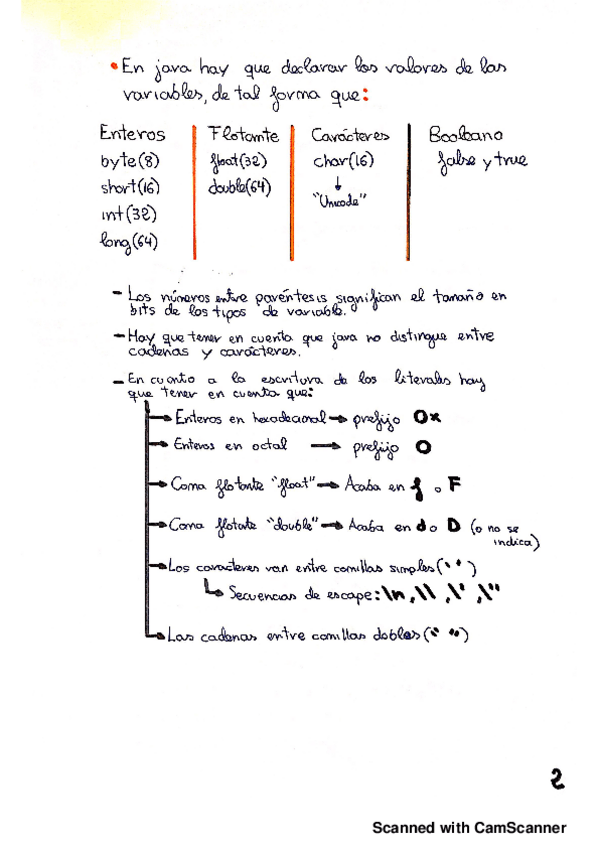 • En java hay que declarar los valores de las
variables, de tal forma que:
Enteros Flotante Carácteres Booleano
byte(8) float(32) char(16) false y true
short(16) double(64) ↓
int(32) "Unicode"
long(64)
- Los números entre paréntesis significan el tamaño en
bits de los tipos de variable.
- Hay que tener en cuenta que java no distingue entre
cadenas y carácteres.
- En cuanto a la escritura de los literales hay
que tener en cuenta que:
→ Enteros en hexadecimal → prefijo 0x
→ Enteros en octal → prefijo 0
→ Coma flotante "float" → Acaba en f o F
→ Coma flotante "double" → Acaba en d o D (o no se
indica)
→ Los carácteres van entre comillas simples (' ')
↳ Secuencias de escape: \n, \\, \', \"
→ Las cadenas entre comillas dobles (" ")
2
Scanned with CamScanner